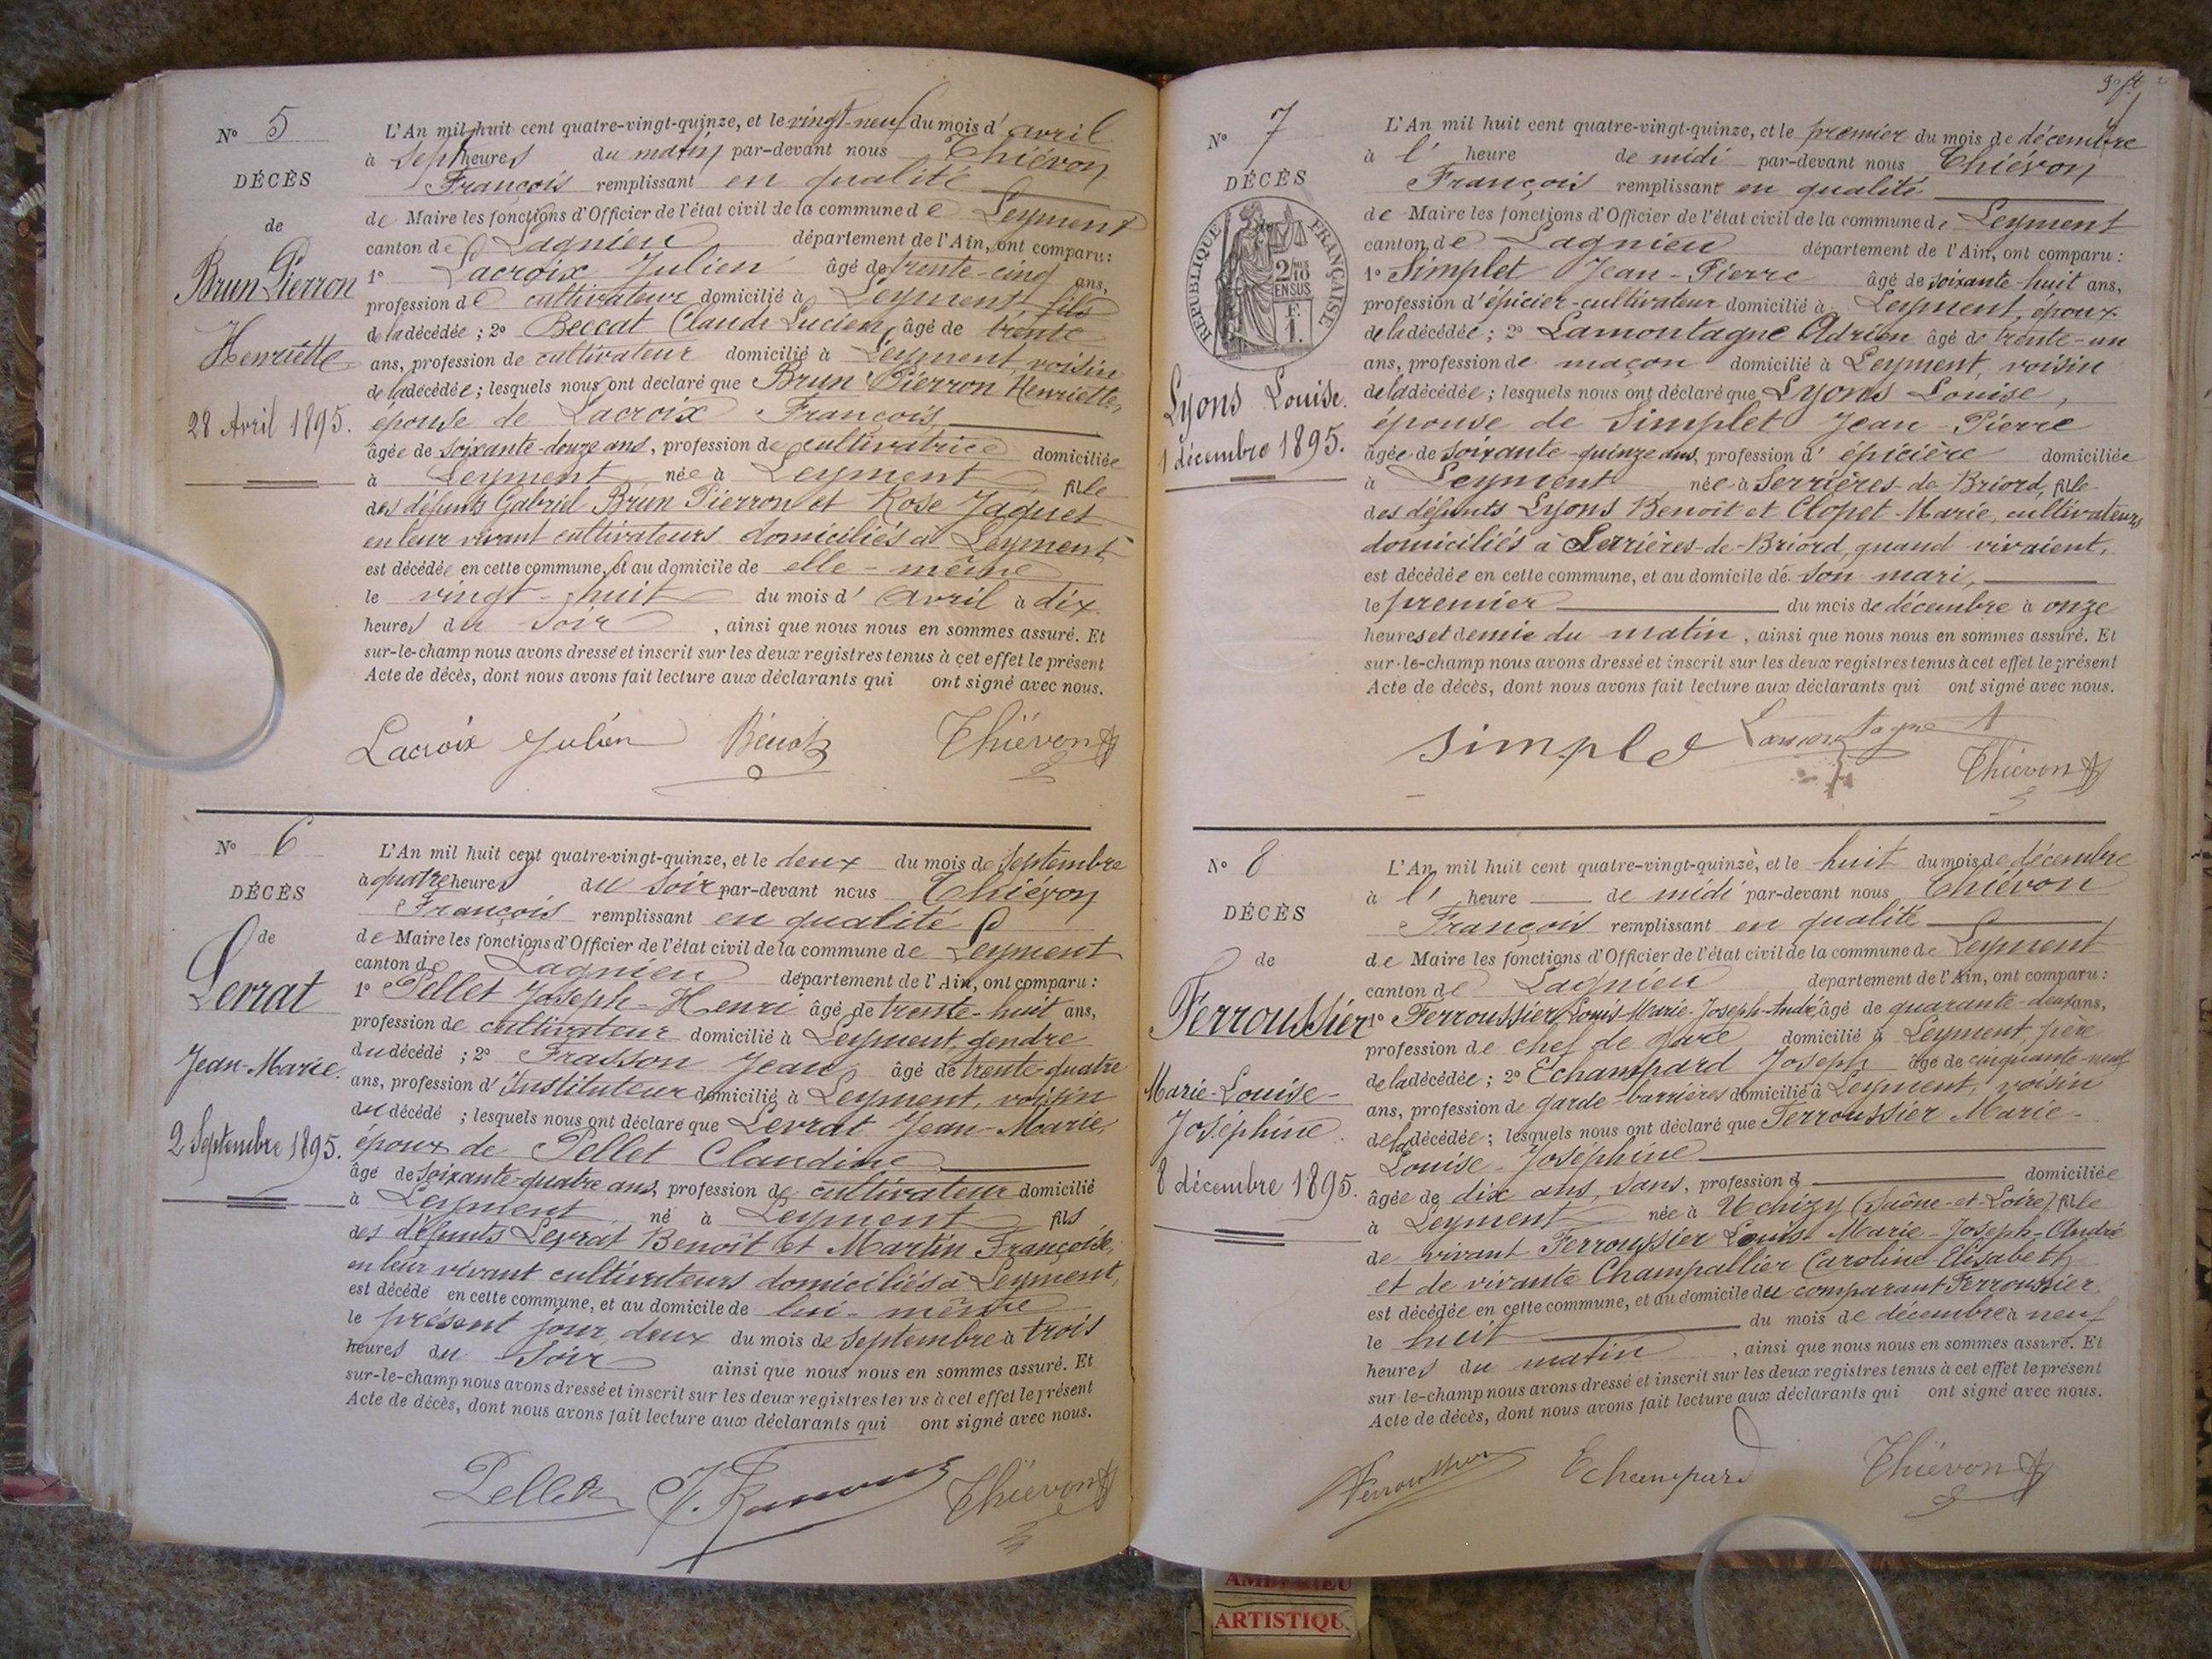 N° 5
DÉCÈS
de
Brun Pierron
Henriette
28 Avril 1895.
L'An mil huit cent quatre-vingt-quinze, et le vingt-neuf du mois d'avril
à sept heures du matin par-devant nous Thiévon
François remplissant en qualité
de Maire les fonctions d'Officier de l'état civil de la commune de Leyment
canton de Lagnieu département de l'Ain, ont comparu:
1° Lacroix Julien âgé de trente-cinq ans,
profession de cultivateur domicilié à Leyment, fils
de la décédée ; 2° Beccat Claude Lucien, âgé de trente
ans, profession de cultivateur domicilié à Leyment, voisin
de la décédée ; lesquels nous ont déclaré que Brun Pierron Henriette,
épouse de Lacroix François
âgée de soixante-douze ans, profession de cultivatrice domiciliée
à Leyment née à Leyment fille
des défunts Gabriel Brun Pierron et Rose Jaquet
en leur vivant cultivateurs domiciliés à Leyment
est décédée en cette commune, et au domicile de elle-même
le vingt-huit du mois d'avril à dix
heures du soir , ainsi que nous nous en sommes assuré. Et
sur-le-champ nous avons dressé et inscrit sur les deux registres tenus à cet effet le présent
Acte de décès, dont nous avons fait lecture aux déclarants qui ont signé avec nous.
Lacroix Julien Thiévon
N° 6
DÉCÈS
de
Levrat
Jean-Marie.
2 Septembre 1895.
L'An mil huit cent quatre-vingt-quinze, et le deux du mois de Septembre
à quatre heures du soir par-devant nous Thiévon
François remplissant en qualité
de Maire les fonctions d'Officier de l'état civil de la commune de Leyment
canton de Lagnieu département de l'Ain, ont comparu :
1° Pellet Joseph-Henri âgé de trente-huit ans,
profession de cultivateur domicilié à Leyment, gendre
du décédé ; 2° Frasson Jean, âgé de trente-quatre
ans, profession d'Instituteur domicilié à Leyment, voisin
du décédé ; lesquels nous ont déclaré que Levrat Jean-Marie,
époux de Pellet Claudine
âgé de soixante-quatre ans, profession de cultivateur domicilié
à Leyment né à Leyment fils
des défunts Levrat Benoît et Martin Françoise,
en leur vivant cultivateurs domiciliés à Leyment,
est décédé en cette commune, et au domicile de lui-même
le présent jour, deux du mois de Septembre à trois
heures du soir ainsi que nous nous en sommes assuré. Et
sur-le-champ nous avons dressé et inscrit sur les deux registres tenus à cet effet le présent
Acte de décès, dont nous avons fait lecture aux déclarants qui ont signé avec nous.
Pellet Thiévon
N° 7
DÉCÈS
RÉPUBLIQUE FRANÇAISE
2/10
EN SUS
F.
1.
Lyons Louise.
1 décembre 1895.
L'An mil huit cent quatre-vingt-quinze, et le premier du mois de décembre
à l' heure de midi par-devant nous Thiévon
François remplissant en qualité
de Maire les fonctions d'Officier de l'état civil de la commune de Leyment
canton de Lagnieu département de l'Ain, ont comparu :
1° Simplet Jean-Pierre âgé de soixante-huit ans,
profession d'épicier-cultivateur domicilié à Leyment, époux
de la décédée ; 2° Lamontagne Adrien âgé de trente-un
ans, profession de maçon domicilié à Leyment, voisin
de la décédée ; lesquels nous ont déclaré que Lyons Louise,
épouse de Simplet Jean-Pierre
âgée de soixante-quinze ans, profession d'épicière domiciliée
à Leyment née à Serrières-de-Briord, fille
des défunts Lyons Benoît et Clopet Marie, cultivateurs
domiciliés à Serrières-de-Briord, quand vivaient,
est décédée en cette commune, et au domicile de son mari,
le premier du mois de décembre à onze
heures et demie du matin, ainsi que nous nous en sommes assuré. Et
sur-le-champ nous avons dressé et inscrit sur les deux registres tenus à cet effet le présent
Acte de décès, dont nous avons fait lecture aux déclarants qui ont signé avec nous.
Simplet Lamontagne A
Thiévon
N° 8
DÉCÈS
de
Ferroussier
Marie-Louise-
Joséphine.
8 décembre 1895.
L'An mil huit cent quatre-vingt-quinze, et le huit du mois de décembre
à l' heure de midi par-devant nous Thiévon
François remplissant en qualité
de Maire les fonctions d'Officier de l'état civil de la commune de Leyment
canton de Lagnieu département de l'Ain, ont comparu :
1° Ferroussier Louis-Marie-Joseph-André âgé de quarante-deux ans,
profession de chef de gare domicilié à Leyment, père
de la décédée ; 2° Echampard Joseph âgé de cinquante-neuf
ans, profession de garde-barrières domicilié à Leyment, voisin
de la décédée ; lesquels nous ont déclaré que Ferroussier Marie-
Louise-Joséphine
âgée de dix ans, sans, profession d domiciliée
à Leyment née à Uchizy (Saône-et-Loire) fille
de vivant Ferroussier Louis Marie-Joseph-André
et de vivante Champallier Caroline Elisabeth
est décédée en cette commune, et au domicile du comparant Ferroussier
le huit du mois de décembre à neuf
heures du matin , ainsi que nous nous en sommes assuré. Et
sur-le-champ nous avons dressé et inscrit sur les deux registres tenus à cet effet le présent
Acte de décès, dont nous avons fait lecture aux déclarants qui ont signé avec nous.
Ferroussier Echampard Thiévon
ARTISTIQU